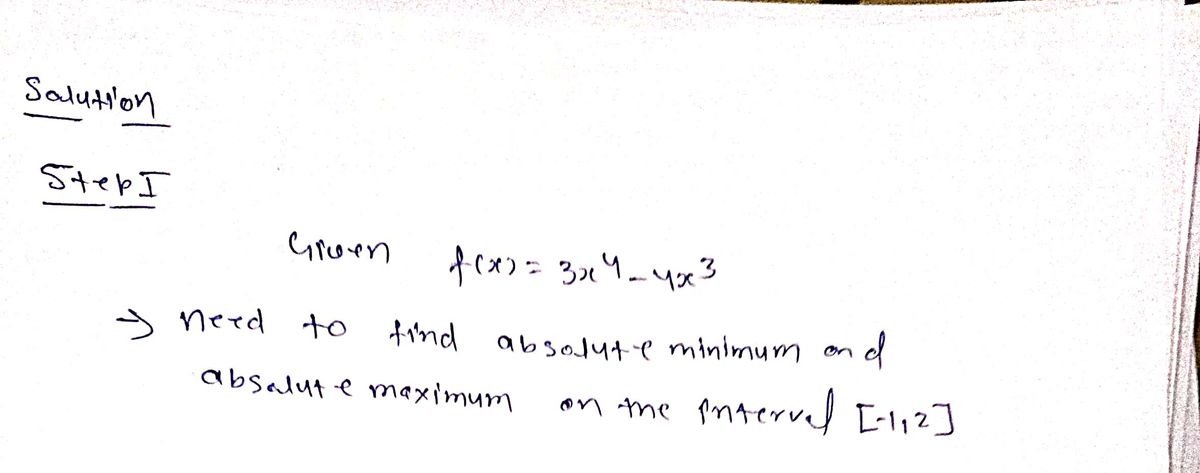 Solution
Step I
Given f(x) = 3x⁴ - 4x³
→ need to find absolute minimum and
absolute maximum on the interval [-1,2]